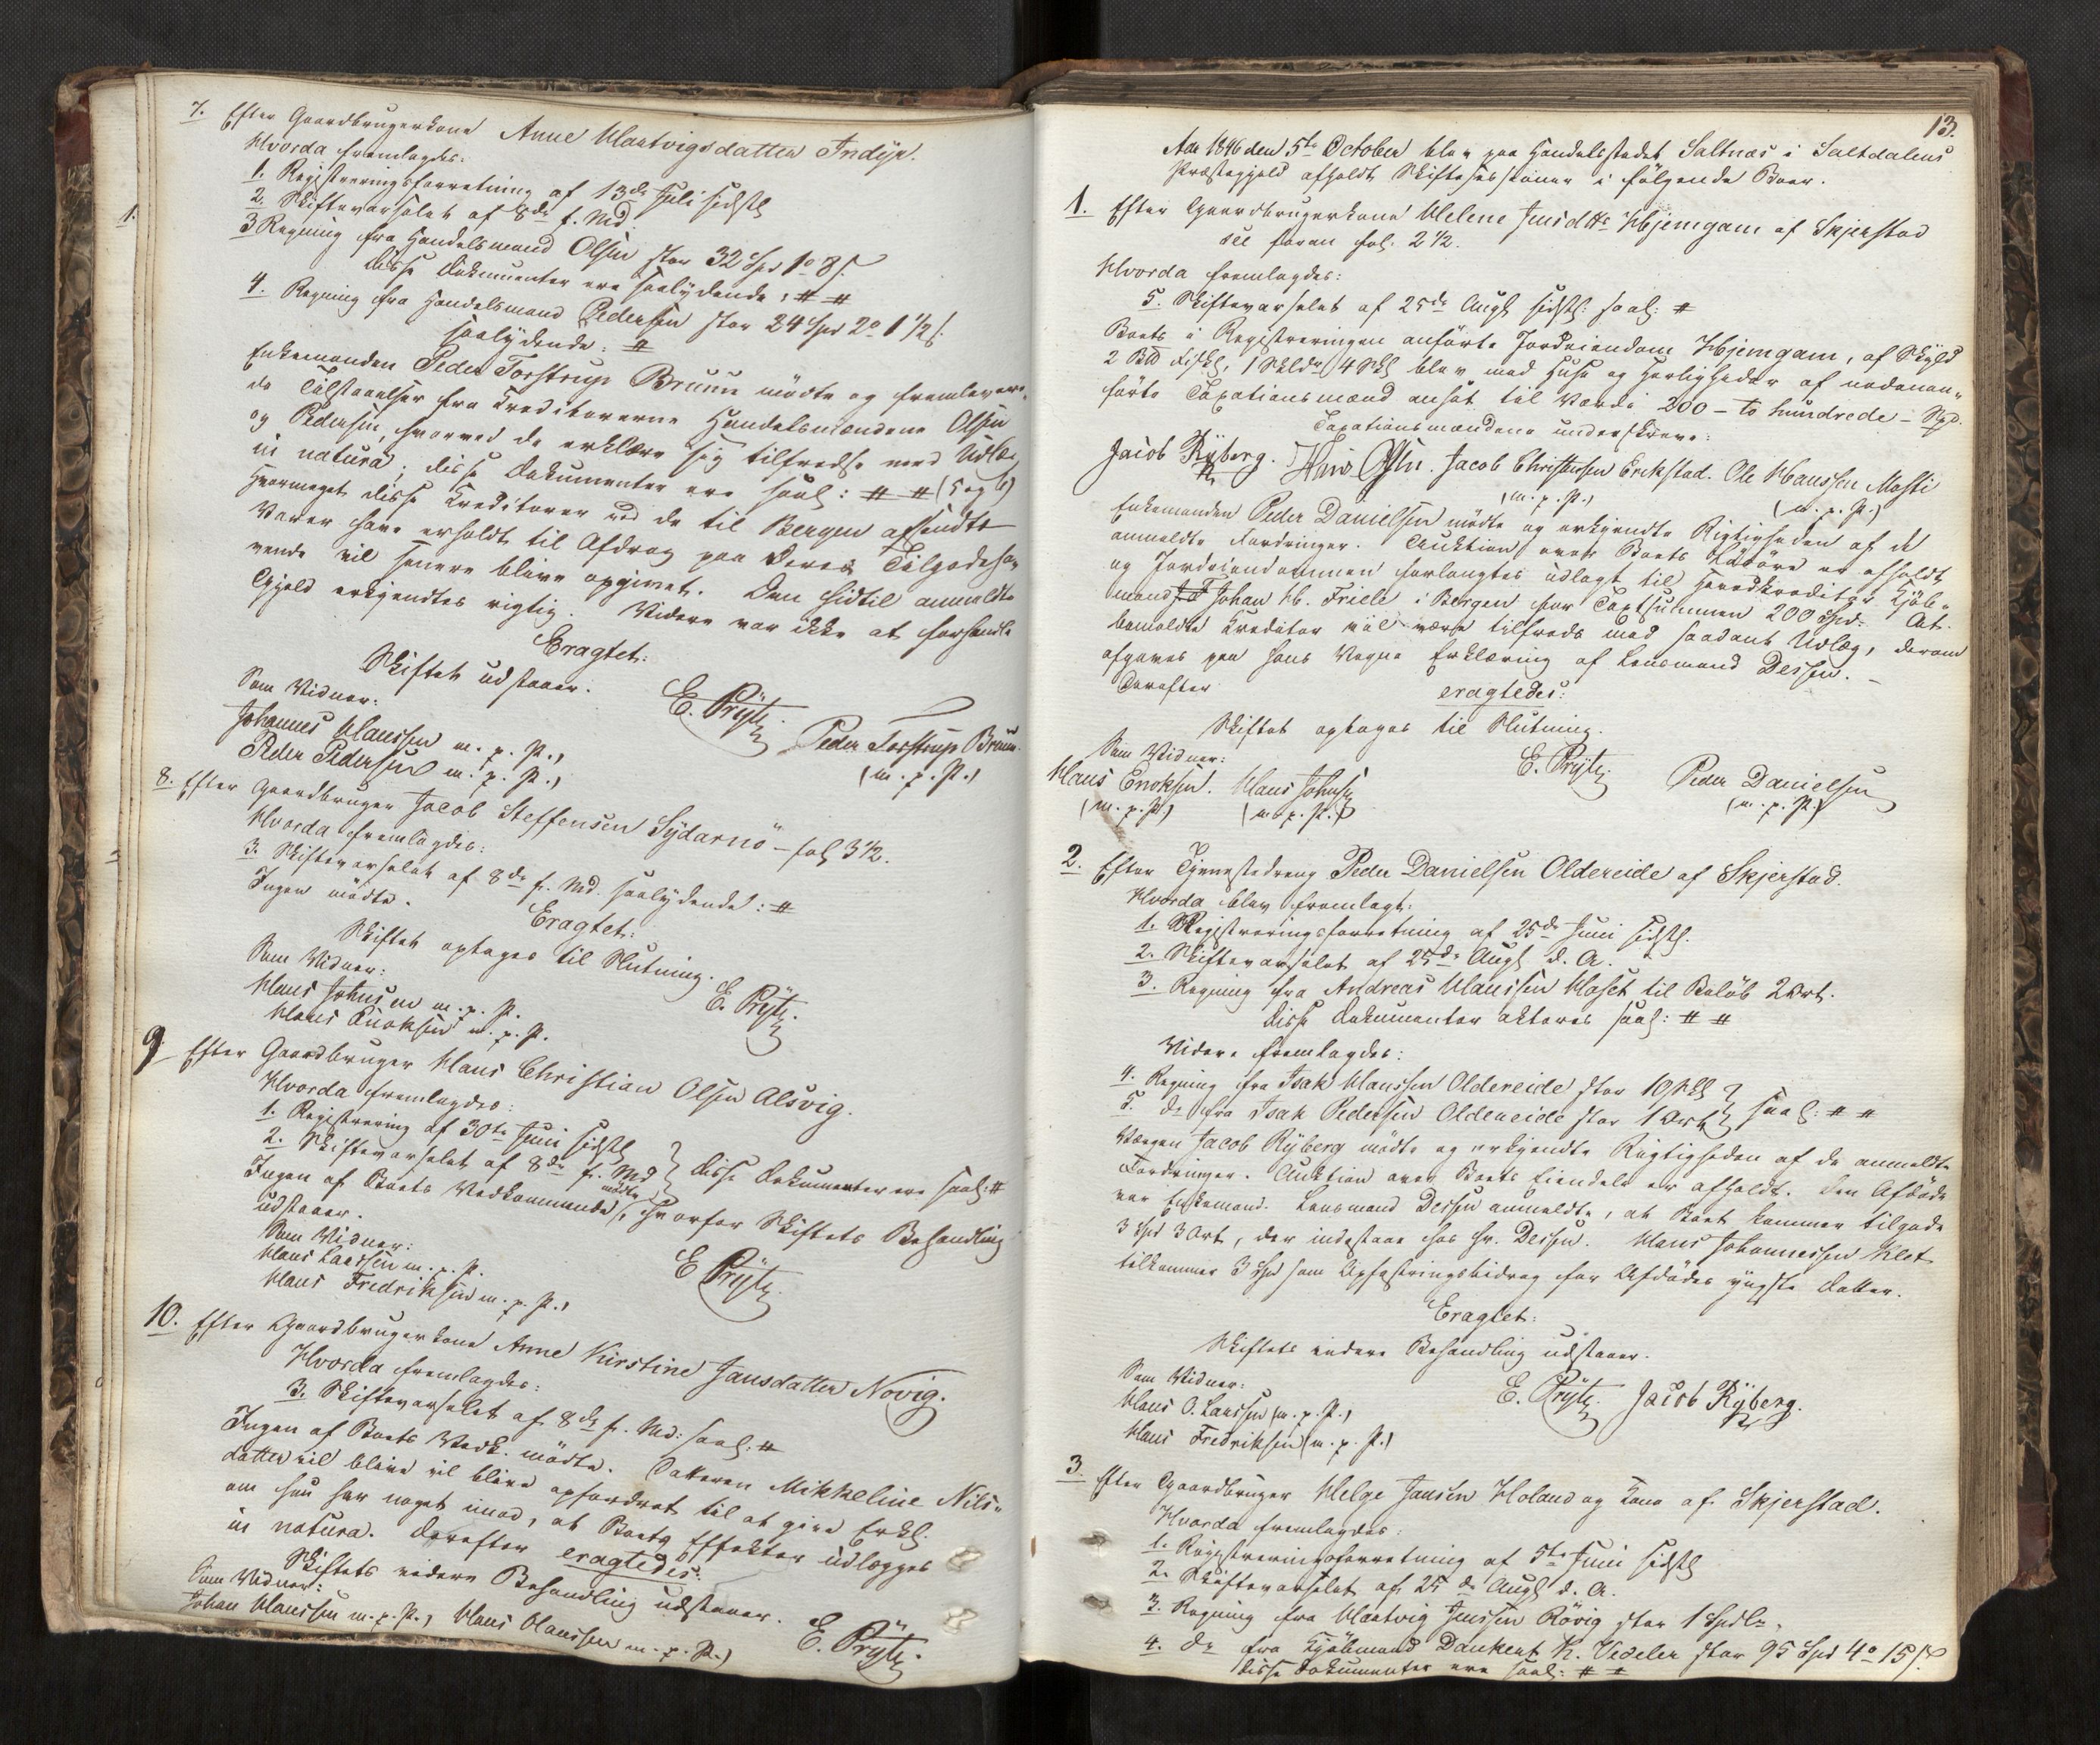 7. Efter Gaardbrugerkone Anne Hartvigsdatter Indyr.
Hvorda fremlagdes:
1. Registreringsforretning af 13de Juli sidstl
2. Skiftevarselet af 8de f. Md.
3 Regning fra Handelsmand Olsen stor 32 Spd 1o 8ß.
disse Dokumenter ere saalydende: # #
4. Regning fra Handelsmand Pedersen stor 24 Spd 2o 1 1/2ß.
saalydende: #
Enkemanden Peder Torstrup Bruun mödte og fremlever-
de Tilstaaelser fra Kreditorerne Handelsmændene Olsen
og Pedersen, hvorved de erklære sig tilfredse med Udlæg
in natura; disse Dokumenter ere saal: # # (5 og 6)
Hvormeget disse Kreditorer ved de til Bergen afsendte
Varer have erholdt til Afdrag paa deres Tilgodeha-
vende vil senere blive opgivet. Den hidtil anmeldte
Gjeld erkjendtes rigtig. Videre var ikke at forhandle
Eragtet:
Skiftet udstaaer.
Som Vidner:
E. Prÿtz.
Johannes Hanssen m. p. P.,
Peder Torstrup Bruun.
Peder Pedersen m. p. P.,
(m. p. P.)
8. Efter Gaardbruger Jacob Steffensen Sydarnö - fol 3 1/2.
Hvorda fremlagdes:
3. Skiftevarselet af 8de f. Md. saalydende: #
Ingen mödte.
Eragtet:
Skiftet optages til Slutning.
Som Vidner:
Hans Johnsen m. p. P.
E. Prÿtz.
Hans Enoksen m. p. P.
9 Efter Gaardbruger Hans Christian Olsen Alsvig.
Hvorda fremlagdes:
1. Registrering af 30te Juni sidstl
2. Skiftevarselet af 8de f. Md } disse Dokumenter ere saal: #
Ingen af Boets Vedkommende mödte, hvorfor Skiftets Behandling
udstaaer.
Som Vidner:
Hans Larssen m. p. P.
E Prÿtz.
Hans Fredriksen m. p. P.,
10. Efter Gaardbrugerkone Anne Kirstine Jansdatter Novig.
Hvorda fremlagdes:
3. Skiftevarselet af 8de f. Md: saal: #
Ingen af Boets Vedk. mödte. Datteren Mikkeline Nils-
datter vil blive vil blive opfordret til at give Erkl.
om hun har noget imod, at Boets Effekter udlægges
in natura. Derefter eragtedes:
Skiftets videre Behandling udstaaer.
Som Vidner:
Johan Hanssen m. p. P., Hans Olaussen m. p. P.)
E. Prÿtz.
13.
Ado 1846 den 5te October blev paa Handelsstedet Saltnæs i Saltdalens
Præstegjeld afholdt Skiftesessioner i fölgende Boer.
1. Efter Gaardbrugerkone Helene Jensdttr Hjemgam af Skjerstad
see foran fol. 2 1/2.
Hvorda fremlagdes:
5. Skiftevarselet af 25de Augt sidstl: saal: #
Boets i Registreringen anförte Jordeiendom Hjemgam, af Skyld
2 Bd Fiskel, 1 Skldr 4 Skl blev med Huse og Herligheder af nedenan-
förte Taxationsmænd ansat til Værdi 200 - to hundrede - Spd.
Taxationsmændene underskreve:
Jacob Rÿberg. Hans Olsen. Jacob Christensen Erikstad. Ole Hanssen Mosti
(m. p. P.)
(m. p. P.)
Enkemanden Peder Danielsen mödte og erkjendte Rigtigheden af de
anmeldte Fordringer. Auktion over Boets Lösöre er afholdt
og Jordeiendommen forlangtes udlagt til Hovedkreditor Kjöb-
mand Johan Hb. Friele i Bergen for Taxtsummen 200 Spd. At
bemeldte Kreditor vil være tilfreds med saadant Udlæg, derom
afgaves paa hans Vegne Erklæring af Lensmand Dessen. -
Derefter
eragtedes:
Skiftet optages til Slutning.
Som Vidner:
Hans Enoksen. Hans Johnsen
E. Prÿtz.
Peder Danielsen
(m. p. P.) (m. p. P.)
(m. p. P.)
2. Efter Tjenestedreng Peder Danielsen Oldereide af Skjerstad.
Hvorda blev fremlagt:
1. Registreringsforretning af 25de Juni sidstl.
2. Skiftevarselet af 25de Augt d. A.
3. Regning fra Andreas Hanssen Moset til Belöb 2 Ort.
disse Dokumenter akteres saal: # #
Videre fremlagdes:
4. Regning fra Isak Hanssen Oldereide stor 10 skl
5. do fra Isak Pedersen Oldereide stor 1 Ort } saal: # #
Værgen Jacob Rÿberg mödte og erkjendte Rigtigheden af de anmeldte
Fordringer. Auktion over Boets Eiendele er afholdt. Den Afdöde
var Enkemand. Lensmand Dessen anmeldte, at Boet kommer tilgode
3 Spd 3 Ort, der indestaae hos Hr. Dessen. Hans Johannessen Klet
tilkommer 3 Spd som Opfostringsbidrag for Afdödes yngste Datter.
Eragtet:
Skiftets videre Behandling udstaaer.
Som Vidner:
Hans O. Larssen (m. p. P.)
E. Prÿtz. Jacob Rÿberg.
Hans Fredriksen (m. p. P.)
3. Efter Gaardbruger Helge Jansen Holand og Kone af Skjerstad.
Hvorda fremlagdes:
1. Registreringsforretning af 5te Juni sidstl
2. Skiftevarselet af 25de Augt d. A.
3. Regning fra Hartvig Jenssen Rövig stor 1 Spdlr,
4. do fra Kjöbmand Dankert K. Vedeler stor 95 Spd 4o 15ß
disse Dokumenter ere saal: # #
1.